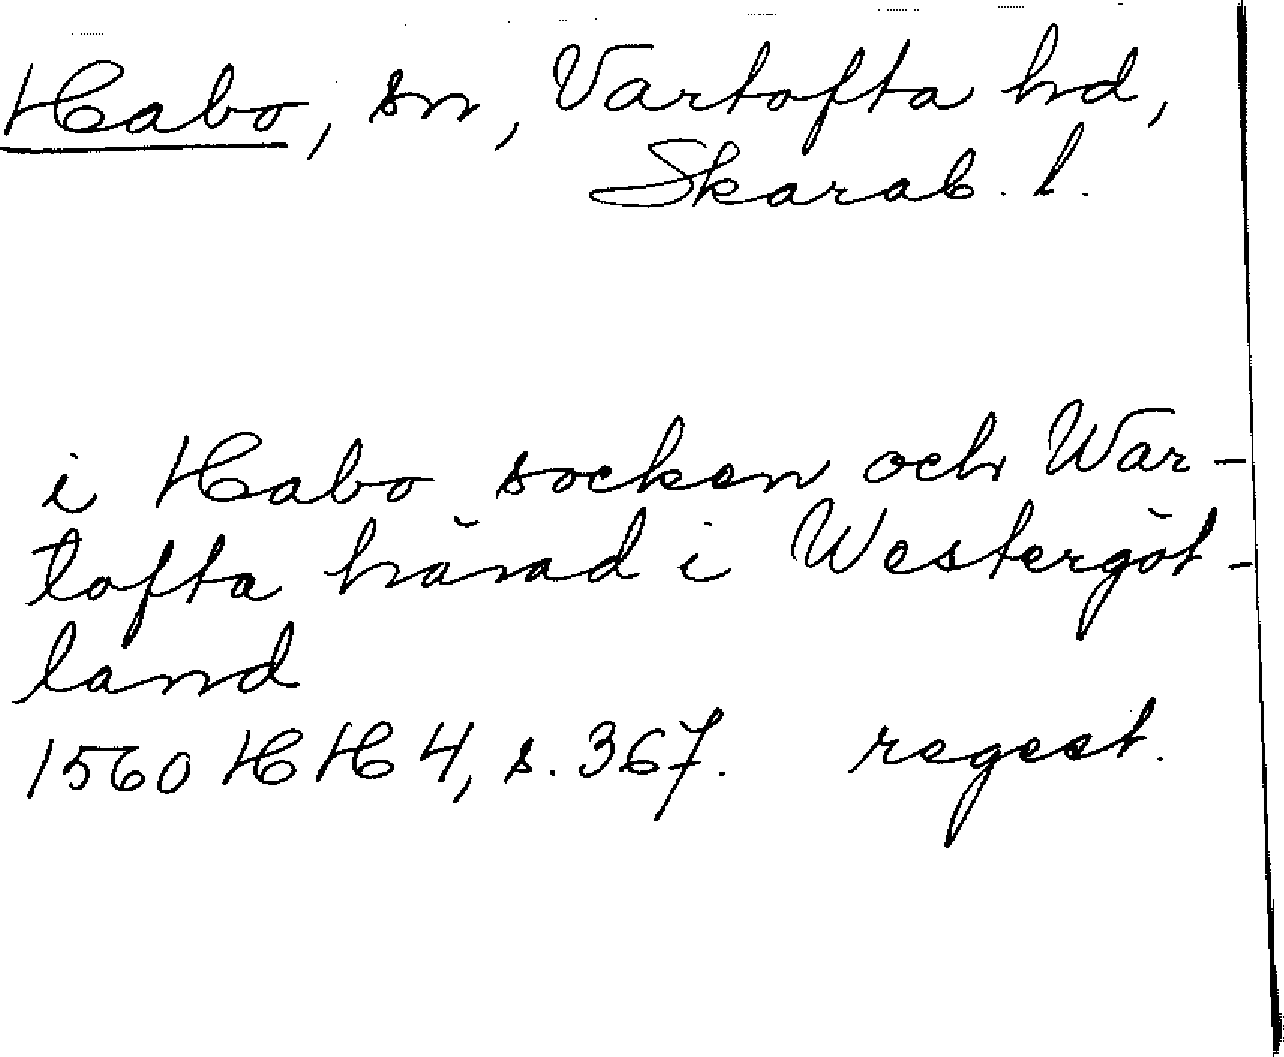 Habo, sn, Vartofta hd,
Skarab. l.
i Habo socken och War-
tofta härad i Westergöt-
land
1560 HH 4, s. 367. regest.